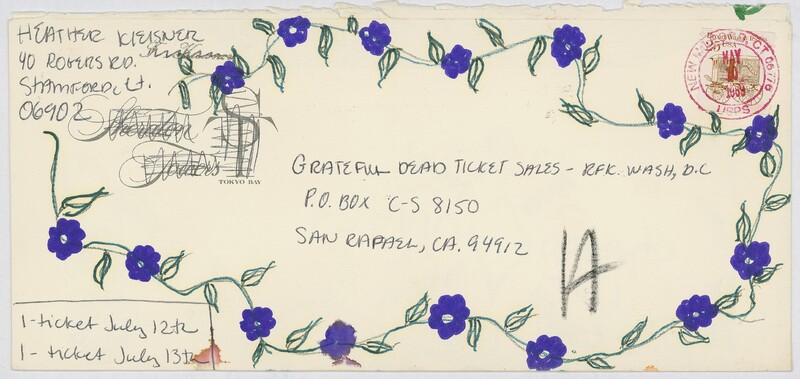 HEATHER KLEISNER
40 ROGERS RD.
STAMFORD, Ct.
06902
TOKYO BAY
NEW MILFORD CT 06776
MAY
1989
USPS
USA
GRATEFUL DEAD TICKET SALES - RFK. WASH, D.C
P.O. BOX C-S 8150
SAN RAFAEL, CA. 94912
A
1-ticket July 12th
1- ticket July 13th